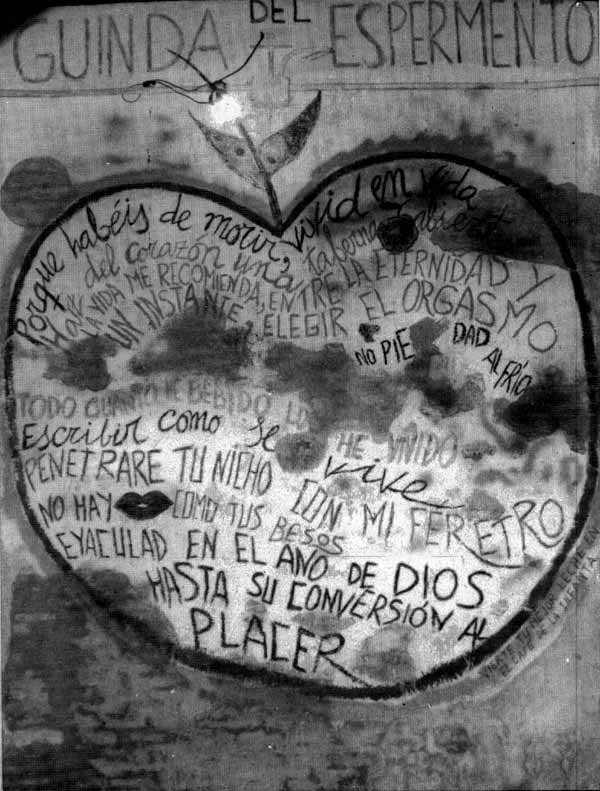 GUINDA DEL ESPERMENTO
Porque habéis de morir, vivid en vida
HAY del corazón una taberna abierta
LA VIDA ME RECOMIENDA, ENTRE LA ETERNIDAD Y
UN INSTANTE, ELEGIR EL ORGASMO
NO PIE DAD AL FRÍO
TODO CUANTO HE BEBIDO LO HE VIVIDO
Escribir como se vive
PENETRARE TU NICHO CON MI FERETRO
NO HAY COMO TUS BESOS
EYACULAD EN EL ANO DE DIOS
HASTA SU CONVERSIÓN AL
PLACER